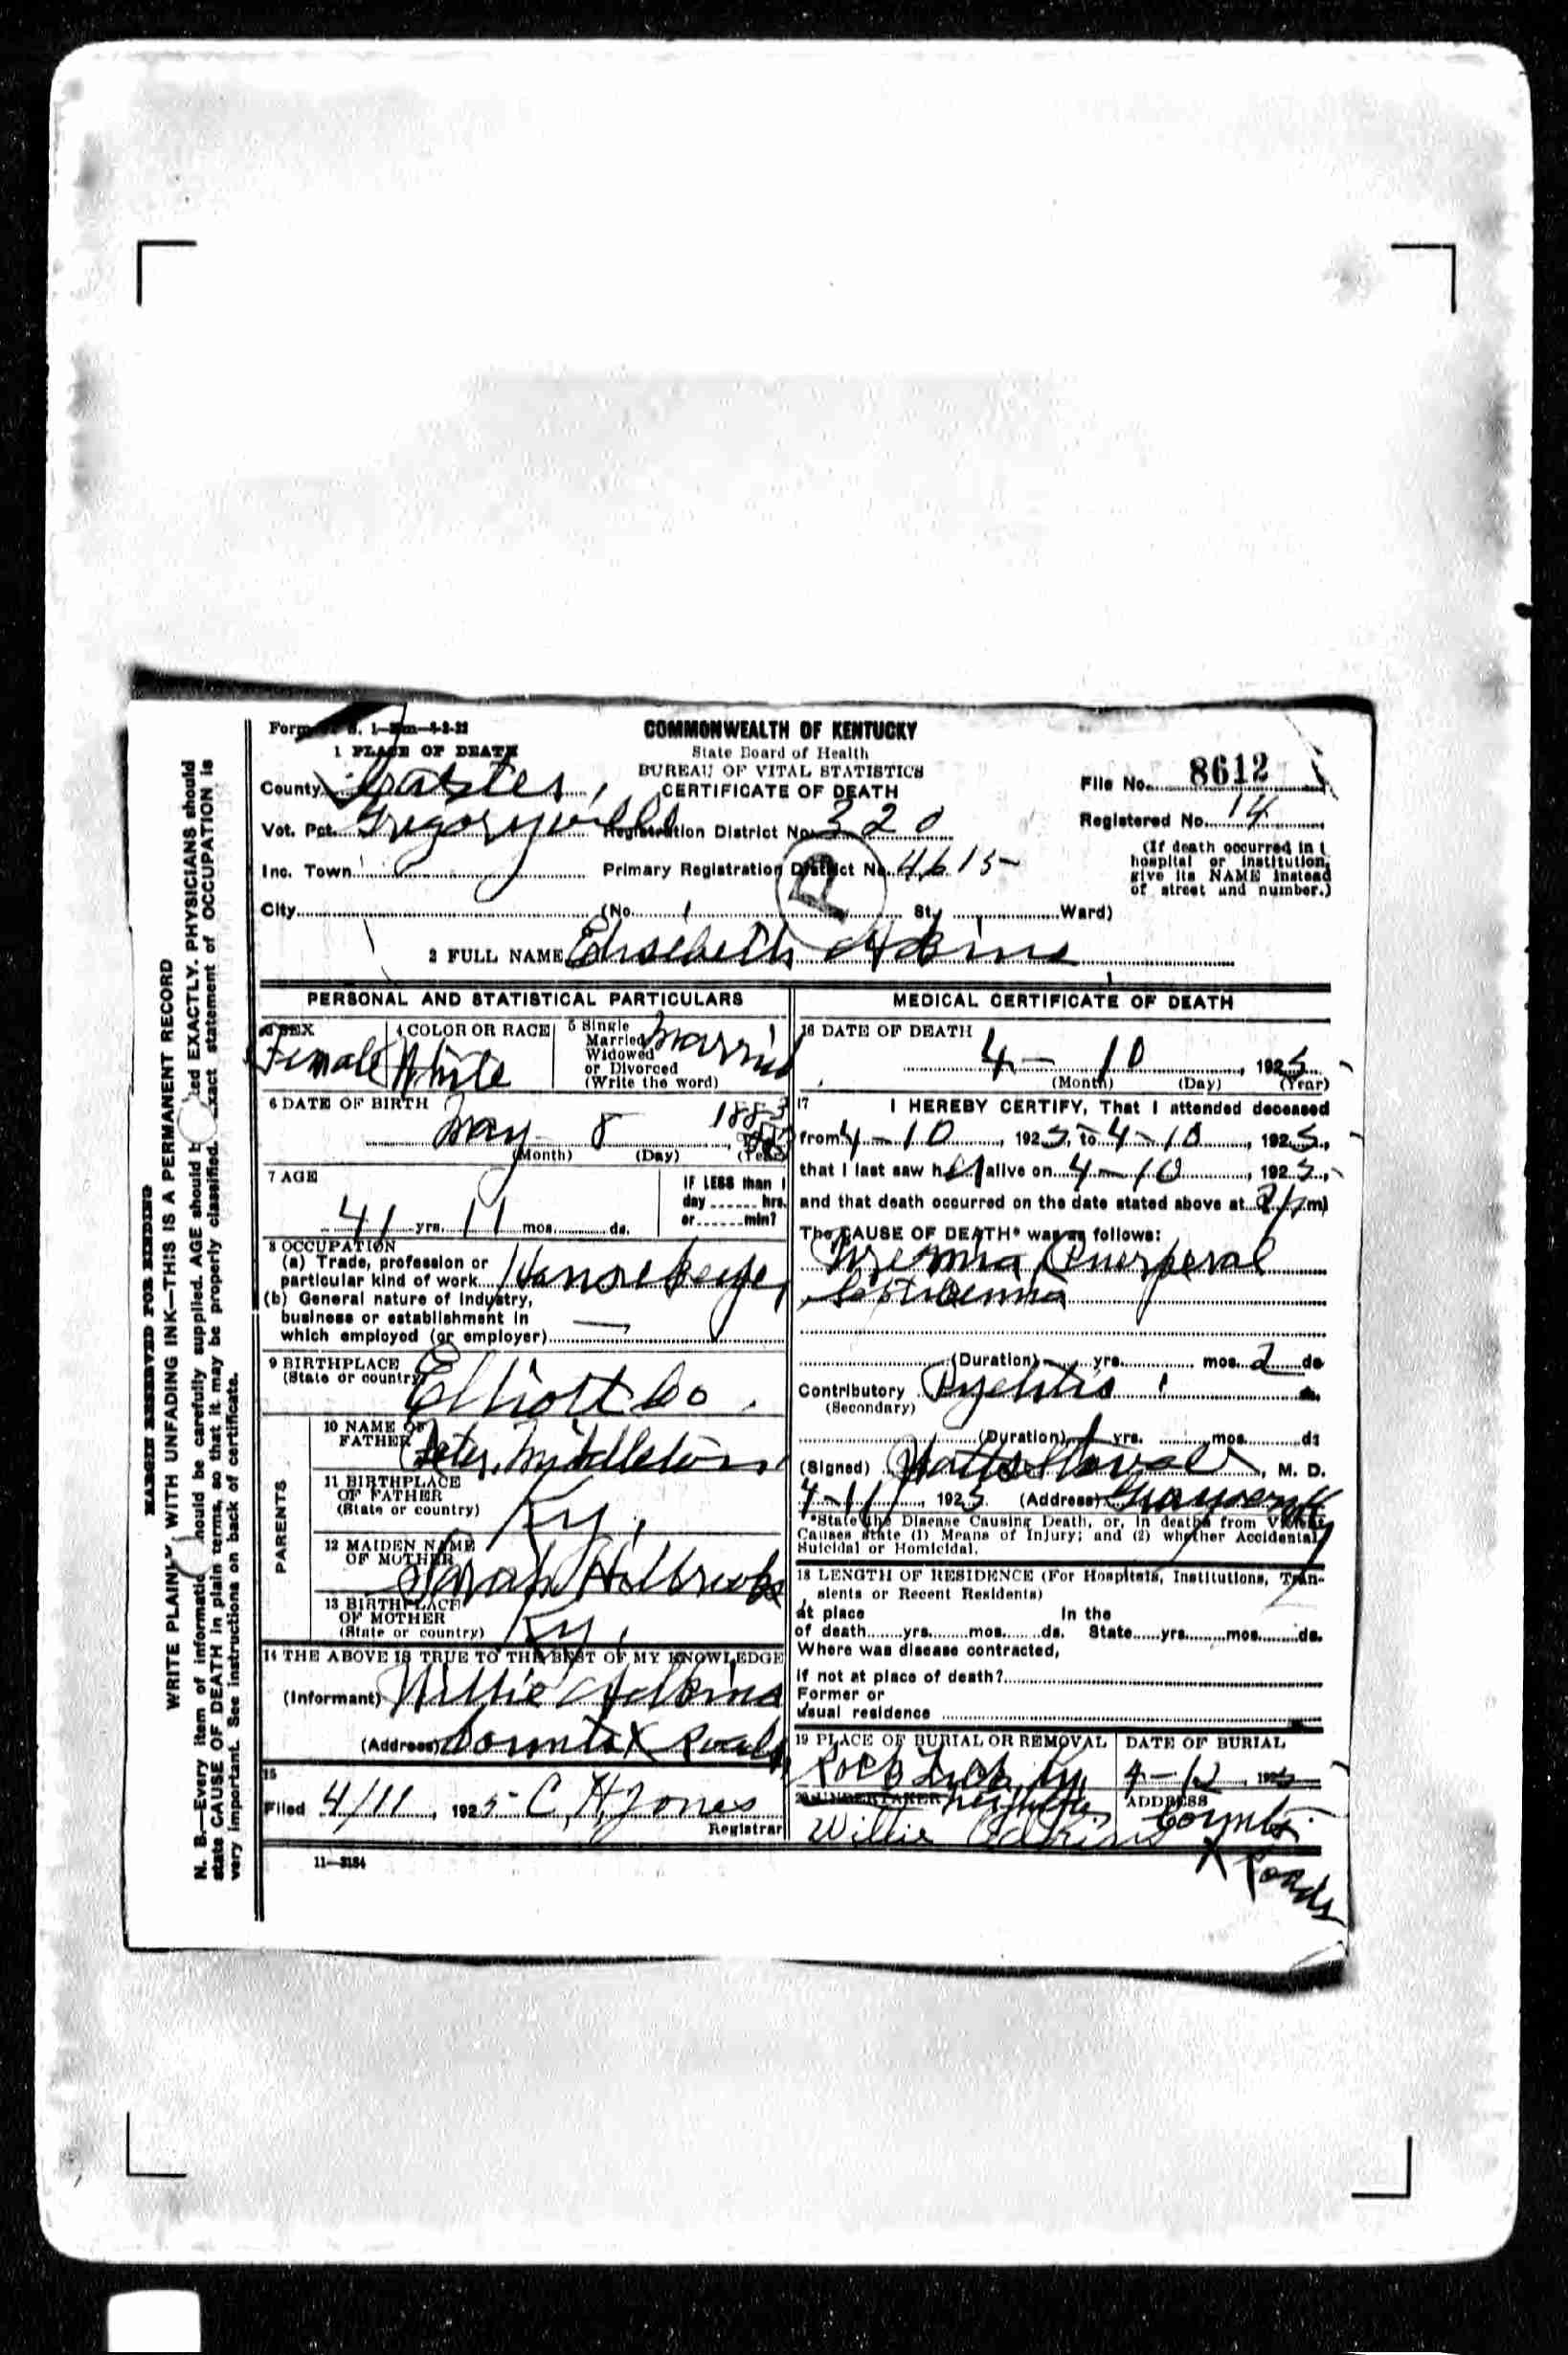 COMMONWEALTH OF KENTUCKY
State Board of Health
BUREAU OF VITAL STATISTICS
CERTIFICATE OF DEATH
1 PLACE OF DEATH
County Carter,
Vot. Pct. Gregoryville Registration District No. 320
Inc. Town Primary Registration District No. 4615
City (No. St. Ward)
File No. 8612
Registered No. 14
(If death occurred in
hospital or institution,
give its NAME instead
of street and number.)
2 FULL NAME Elisebeth Adkins
PERSONAL AND STATISTICAL PARTICULARS
3 SEX Female
4 COLOR OR RACE White
5 Single
Married
Widowed
or Divorced
(Write the word)
Married
6 DATE OF BIRTH
May 8 1883
(Month) (Day) (Year)
7 AGE
41 yrs. 11 mos. ds.
IF LESS than 1
day hrs.
or min?
8 OCCUPATION
(a) Trade, profession or
particular kind of work
(b) General nature of Industry,
business or establishment in
which employed (or employer)
9 BIRTHPLACE
(State or country)
Elliott Co.
PARENTS
10 NAME OF
FATHER Peter Middleton
11 BIRTHPLACE
OF FATHER
(State or country) Ky.
12 MAIDEN NAME
OF MOTHER Sarah Holbrooks
13 BIRTHPLACE
OF MOTHER
(State or country) Ky.
14 THE ABOVE IS TRUE TO THE BEST OF MY KNOWLEDGE
(Informant) Willie Adkins
(Address) Counts X Roads
15
Filed 4/11, 1925 C H Jones
Registrar
11—3184
MEDICAL CERTIFICATE OF DEATH
16 DATE OF DEATH
4 — 10, 1925
(Month) (Day) (Year)
17 I HEREBY CERTIFY, That I attended deceased
from 4-10, 1925, to 4-10, 1925,
that I last saw her alive on 4-10, 1925,
and that death occurred on the date stated above at 2 P m
The CAUSE OF DEATH* was as follows:
Uremia Puerperal
(Duration) yrs. mos. 2 ds
Contributory Pyelitis
(Secondary)
(Duration) yrs. mos. ds
(Signed) , M. D.
4-11, 1925 (Address) Grayson Ky
*State the Disease Causing Death, or, in deaths from Violent
Causes state (1) Means of Injury; and (2) whether Accidental,
Suicidal or Homicidal.
18 LENGTH OF RESIDENCE (For Hospitals, Institutions, Tran-
sients or Recent Residents)
At place In the
of death yrs. mos. ds. State yrs. mos. ds.
Where was disease contracted,
If not at place of death?
Former or
usual residence
19 PLACE OF BURIAL OR REMOVAL
DATE OF BURIAL
Ky. 4-12, 1925
20 UNDERTAKER
ADDRESS
Willie Adkins Counts
X Roads
MARGIN RESERVED FOR BINDING
WRITE PLAINLY WITH UNFADING INK—THIS IS A PERMANENT RECORD
N. B.—Every item of information should be carefully supplied. AGE should be stated EXACTLY. PHYSICIANS should
state CAUSE OF DEATH in plain terms, so that it may be properly classified. Exact statement of OCCUPATION is
very important. See instructions on back of certificate.